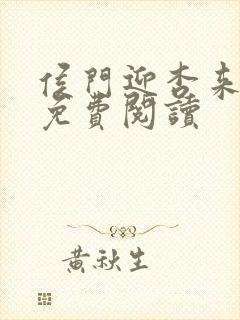 侯門迎杏來
免費閱讀
黃秋生